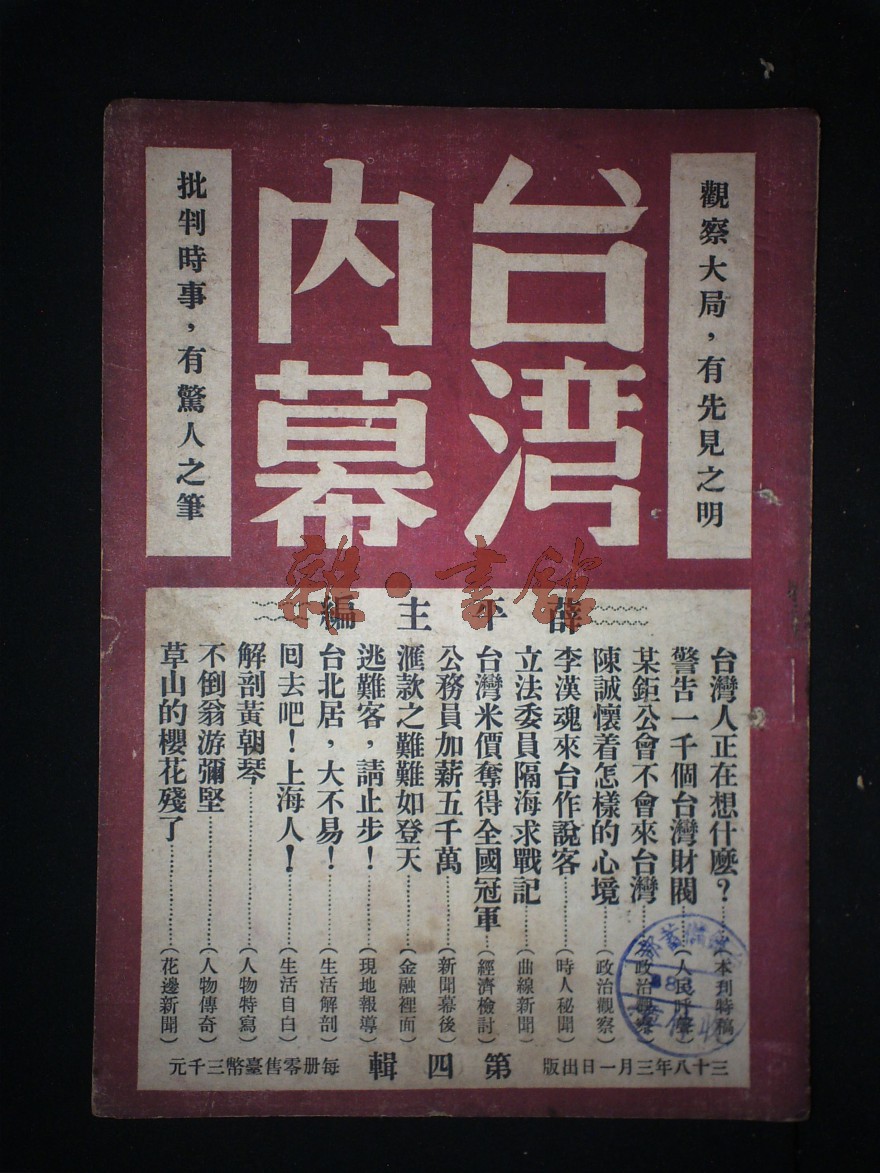 觀察大局，有先見之明
台灣
內幕
批判時事，有驚人之筆
薛平主編
雜·書館
台灣人正在想什麼？……（本刊特稿）
警告一千個台灣財閥……（人民呼聲）
某鉅公會不會來台灣……（政治觀察）
陳誠懷着怎樣的心境……（政治觀察）
李漢魂來台作說客……（時人秘聞）
立法委員隔海求戰記……（曲線新聞）
台灣米價奪得全國冠軍……（經濟檢討）
公務員加薪五千萬……（新聞幕後）
滙款之難難如登天……（金融裡面）
逃難客，請止步！……（現地報導）
台北居，大不易！……（生活解剖）
囘去吧！上海人！……（生活自白）
解剖黃朝琴……（人物特寫）
不倒翁游彌堅……（人物傳奇）
草山的櫻花殘了……（花邊新聞）
三十八年三月一日出版
第四輯
每册零售臺幣三千元